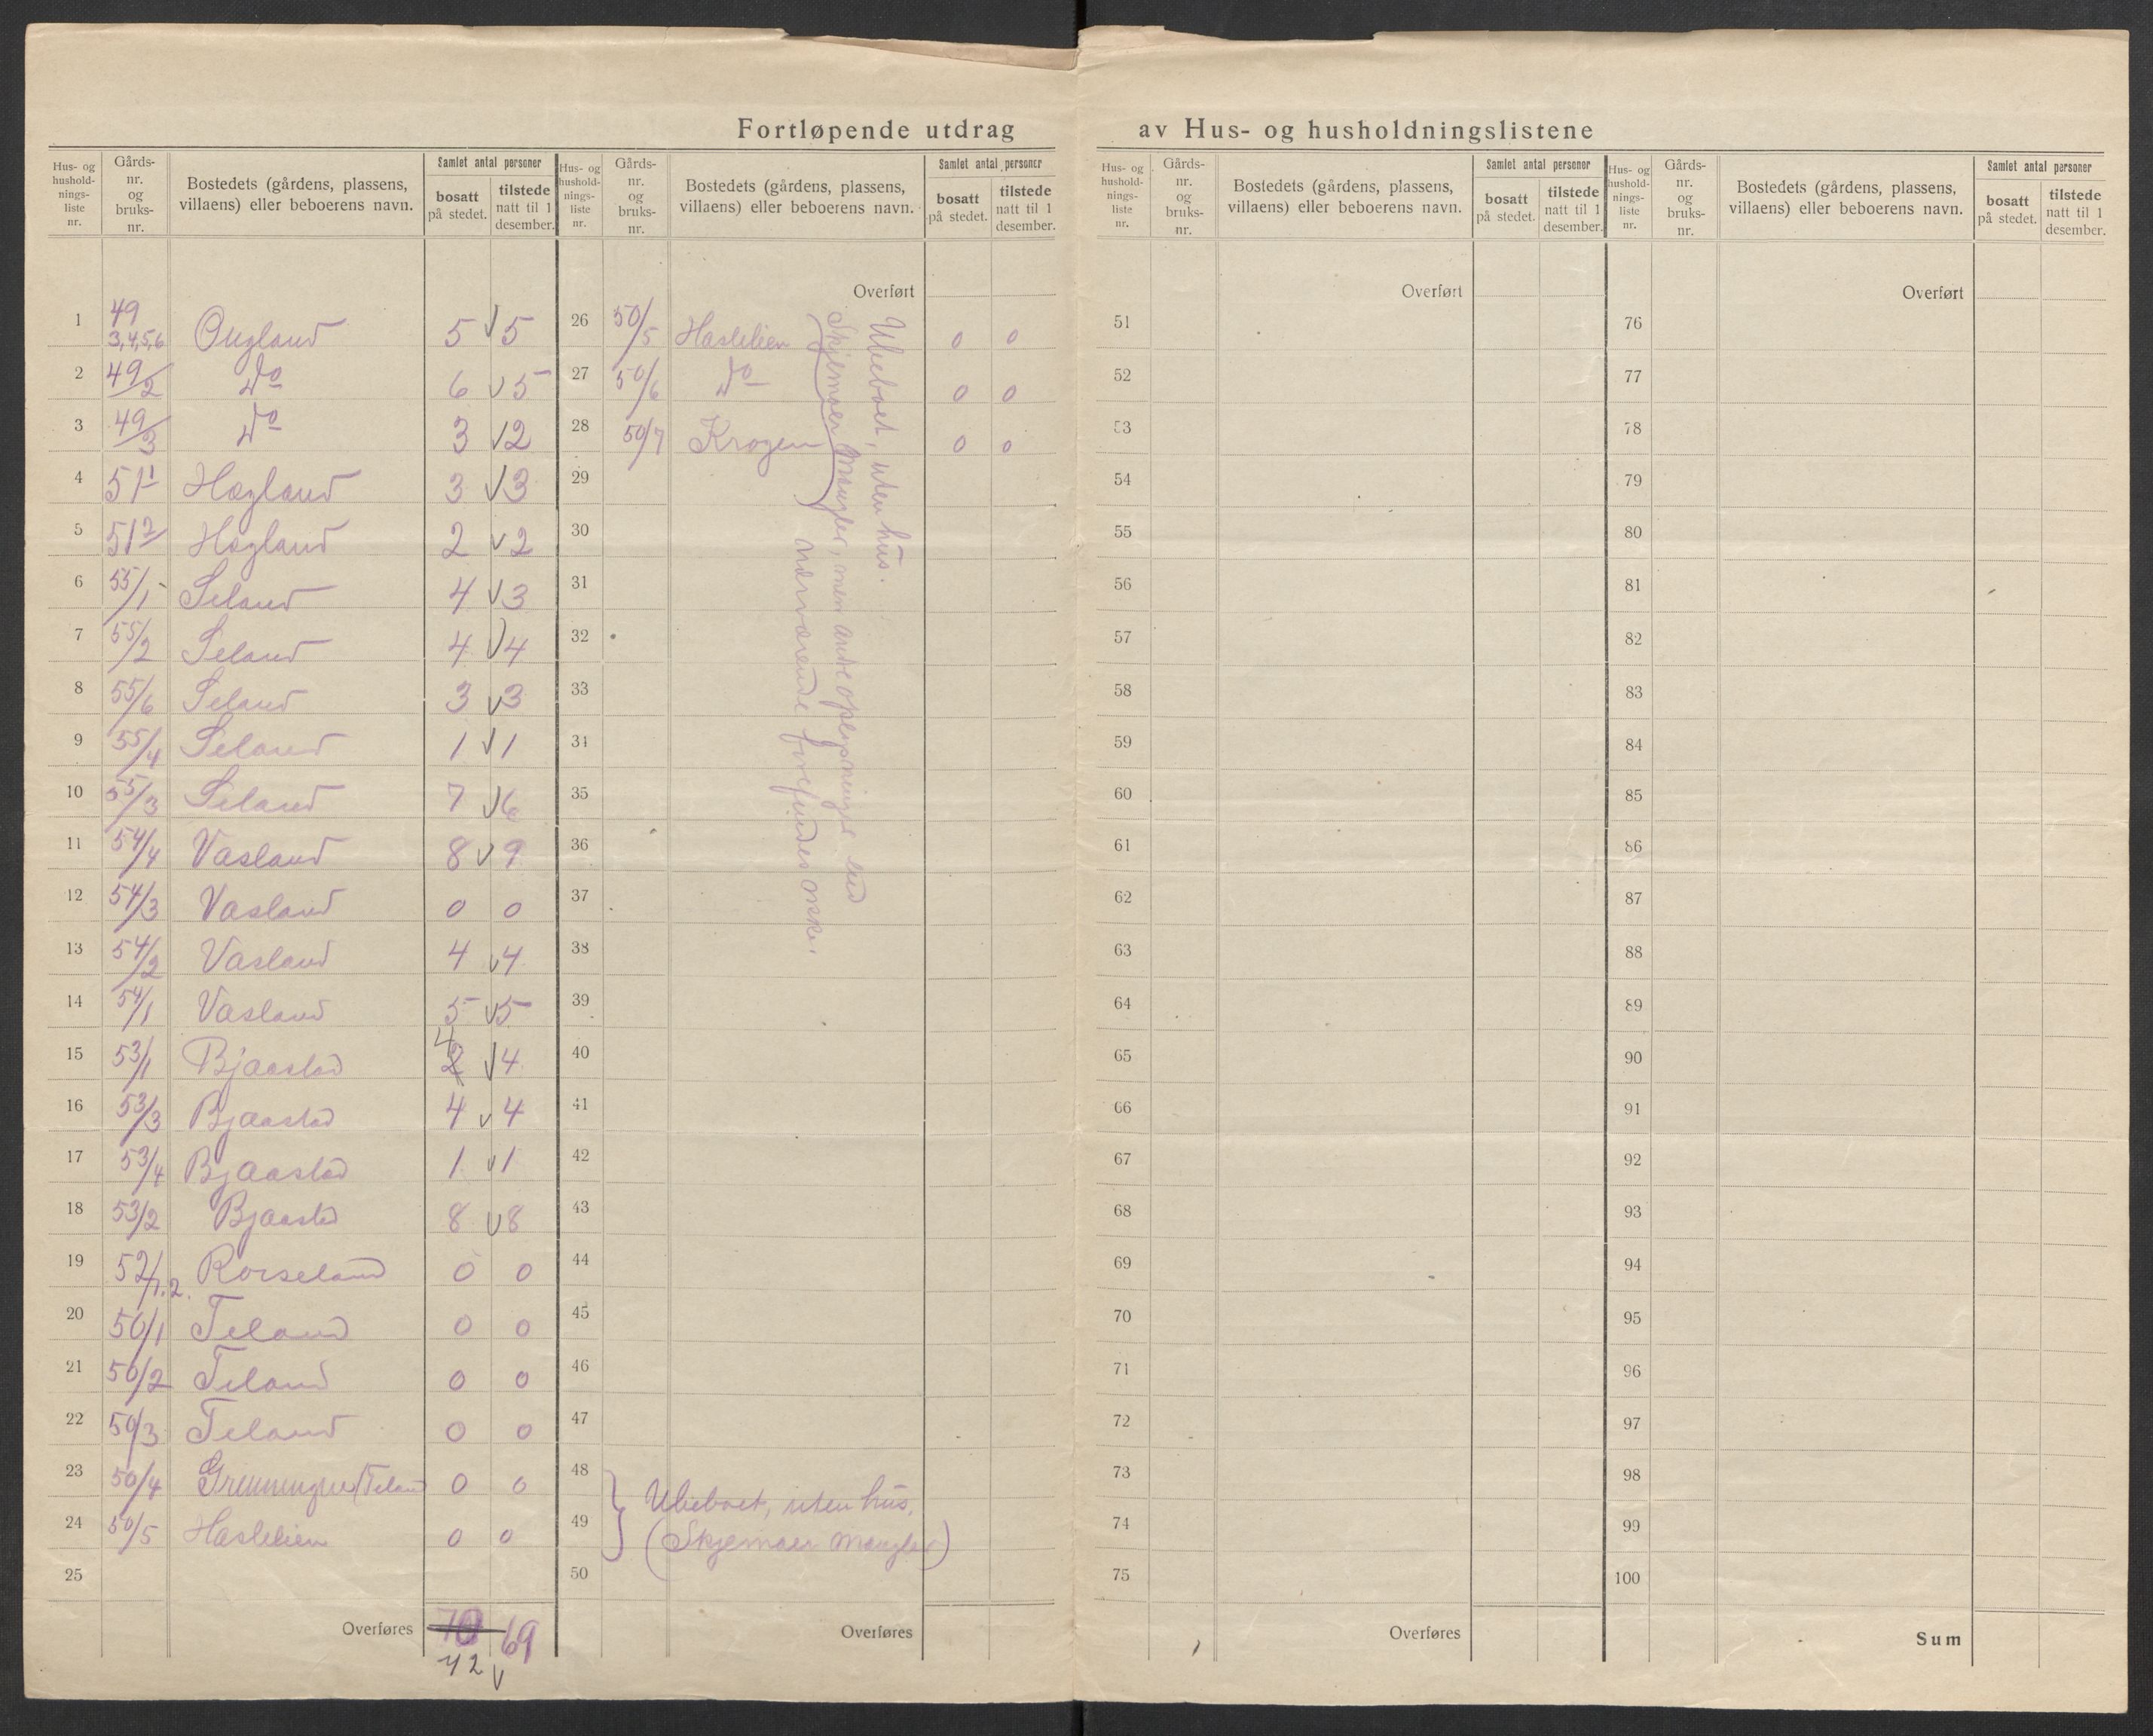 Fortløpende utdrag av Hus- og husholdningslistene
Hus- og hushold-nings-liste nr. | Gårds-nr. og bruks-nr. | Bostedets (gårdens, plassens, villaens) eller beboerens navn. | Samlet antal personer | bosatt på stedet. | tilstede natt til 1 desember.
1 49 3,4,5,6 Øugland 5 √ 5
2 49/2 Do 6 √ 5
3 49/3 Do 3 √ 2
4 51/1 Hægland 3 √ 3
5 51/2 Hægland 2 √ 2
6 55/1 Seland 4 √ 3
7 55/2 Seland 4 √ 4
8 55/6 Seland 3 √ 3
9 55/4 Seland 1 √ 1
10 55/3 Seland 7 √ 6
11 54/4 Vasland 8 √ 9
12 54/3 Vasland 0 0
13 54/2 Vasland 4 √ 4
14 54/1 Vasland 5 √ 5
15 53/1 Bjaastad 2 4 √ 4
16 53/3 Bjaastad 4 √ 4
17 53/4 Bjaastad 1 √ 1
18 53/2 Bjaastad 8 √ 8
19 52/1.2. Rorseland 0 0
20 50/1 Teland 0 0
21 50/2 Teland 0 0
22 50/3 Teland 0 0
23 50/4 (Teland 0 0
24 50/5 Haslelien 0 0
25
Overføres 70 69
72 √
Hus- og hushold-nings-liste nr. | Gårds-nr. og bruks-nr. | Bostedets (gårdens, plassens, villaens) eller beboerens navn. | Samlet antal personer | bosatt på stedet. | tilstede natt til 1 desember.
Overført
26 50/5 Haslelien 0 0
27 50/6 Do 0 0
28 50/7 Krogen 0 0
Ubeboet, uten hus.
Skjemaer mangler, men andre oplysninger end
nærværende forefindes ikke.
29
30
31
32
33
34
35
36
37
38
39
40
41
42
43
44
45
46
47
48 Ubeboet, uten hus.
49 (Skjemaer mangler)
50
Overføres
Hus- og hushold-nings-liste nr. | Gårds-nr. og bruks-nr. | Bostedets (gårdens, plassens, villaens) eller beboerens navn. | Samlet antal personer | bosatt på stedet. | tilstede natt til 1 desember.
Overført
51
52
53
54
55
56
57
58
59
60
61
62
63
64
65
66
67
68
69
70
71
72
73
74
75
Overføres
Hus- og hushold-nings-liste nr. | Gårds-nr. og bruks-nr. | Bostedets (gårdens, plassens, villaens) eller beboerens navn. | Samlet antal personer | bosatt på stedet. | tilstede natt til 1 desember.
Overført
76
77
78
79
80
81
82
83
84
85
86
87
88
89
90
91
92
93
94
95
96
97
98
99
100
Sum